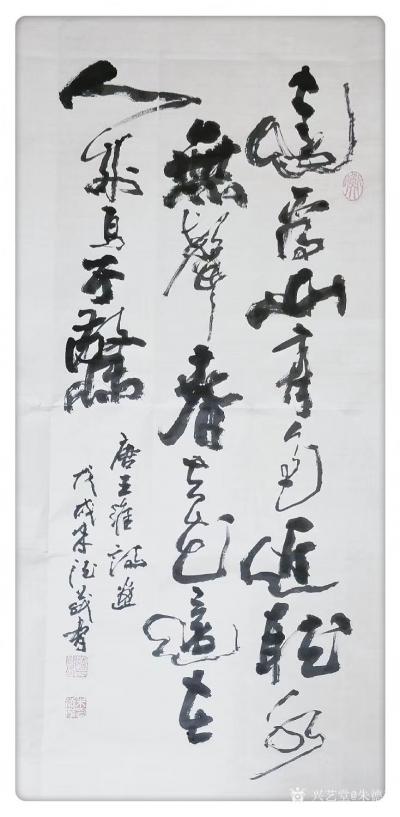 遠看山有色近聽水
無聲春去花還在
人來鳥不驚
唐王維詩選
戊戌朱德茂書
兴艺堂@朱德